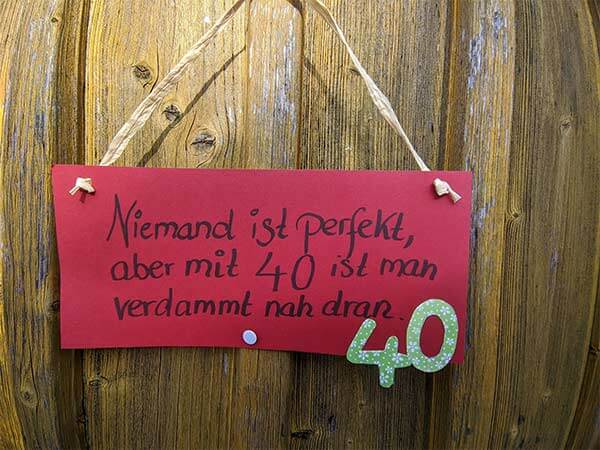 Niemand ist perfekt,
aber mit 40 ist man
verdammt nah dran.
40